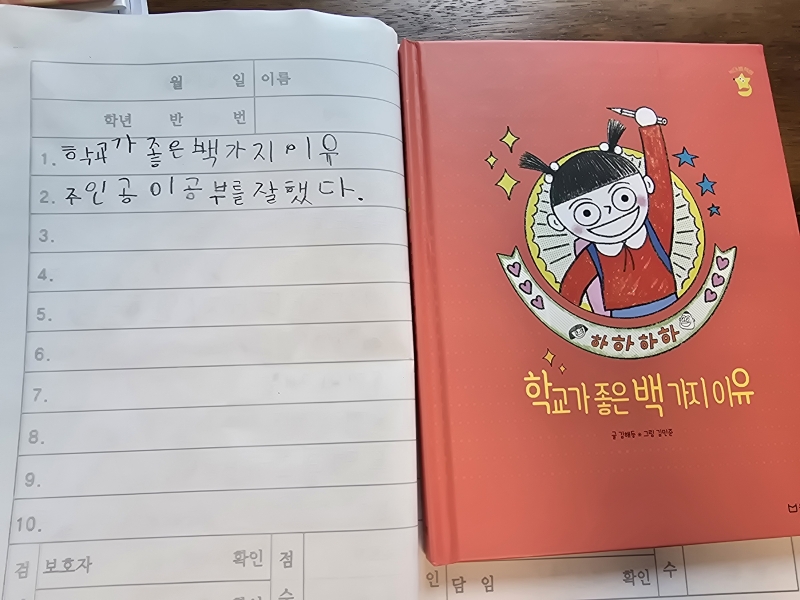 월 일 이름
학년 반 번
1. 학교가 좋은 백가지 이유
2. 주인공이 공부를 잘했다.
3.
4.
5.
6.
7.
8.
9.
10.
검 보호자 확인 점
확인 수
하하하하
학교가 좋은 백 가지 이유
글 김해등 그림 김민준
인 담임 확인 수